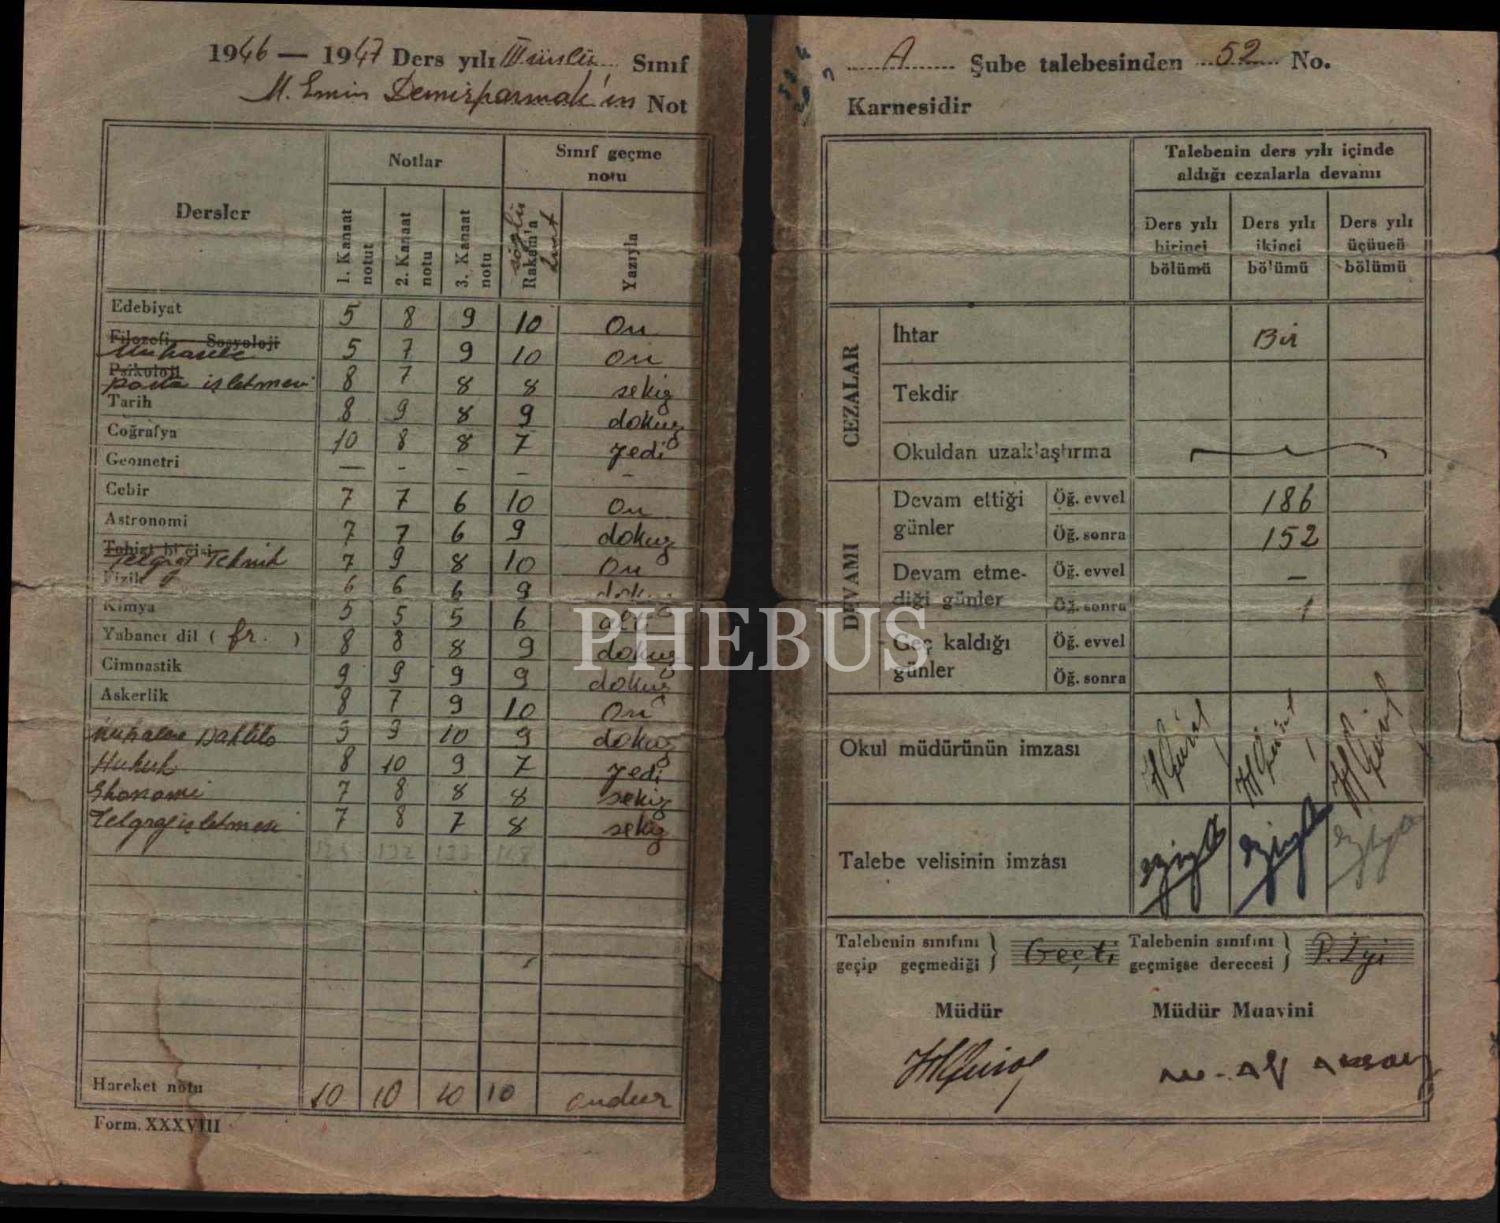 1946 — 1947 Ders yılı III üncü Sınıf
M. Emin Demirparmak'ın Not
Dersler
Notlar
Sınıf geçme
notu
1. Kanaat notut
2. Kanaat notu
3. Kanaat notu
Rakam'a
Yazıyla
Edebiyat 5 8 9 10 On
Filozofi - Sosyoloji
Muhasebe 5 7 9 10 on
Psikoloji
posta işletmesi 8 7 8 8 sekiz
Tarih 8 9 8 9 dokuz
Coğrafya 10 8 8 7 yedi
Geometri — - - - -
Cebir 7 7 6 10 On
Astronomi 7 7 6 9 dokuz
Telgraf Teknik 7 9 8 10 On
Fizik 6 6 6 9
Kimya 5 5 5 6 altı
Yabancı dil ( fr. ) 8 8 8 9 dokuz
Cimnastik 9 9 9 9 dokuz
Askerlik 8 7 9 10 On
Daktilo 9 9 10 9 dokuz
Hukuk 8 10 9 7 yedi
Ekonomi 7 8 8 8 sekiz
Telgraf işletmesi 7 8 7 8 sekiz
Hareket notu 10 10 10 10 ondur
Form. XXXVIII
A Şube talebesinden 52 No.
Karnesidir
Talebenin ders yılı içinde
aldığı cezalarla devamı
Ders yılı birinci bölümü
Ders yılı ikinci bölümü
Ders yılı üçüncü bölümü
CEZALAR
İhtar Bir
Tekdir
Okuldan uzaklaştırma
DEVAMI
Devam ettiği günler
Öğ. evvel 186
Öğ. sonra 152
Devam etmediği günler
Öğ. evvel –
Öğ. sonra 1
Geç kaldığı günler
Öğ. evvel
Öğ. sonra
Okul müdürünün imzası
Talebe velisinin imzası
Talebenin sınıfını
geçip geçmediği } Geçti
Talebenin sınıfını
geçmişse derecesi } P. İyi
Müdür
Müdür Muavini
PHEBUS